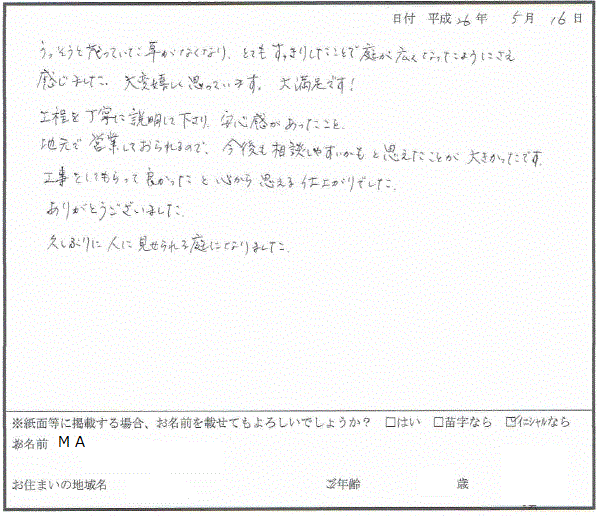 日付 平成26年 5月 16日
うっそうと茂っていた草がなくなり、とてもすっきりしたことで庭が広くなったようにさえ
感じました。大変嬉しく思っています。大満足です!
工程を丁寧に説明して下さり、安心感があったこと、
地元で営業しておられるので、今後も相談しやすいかもと思えたことが大きかったです。
工事をしてもらって良かったと心から思える仕上がりでした。
ありがとうございました。
久しぶりに人に見せられる庭になりました。
※紙面等に掲載する場合、お名前を載せてもよろしいでしょうか? □はい □苗字なら ☑イニシャルなら
お名前 M A
お住まいの地域名 ご年齢 歳